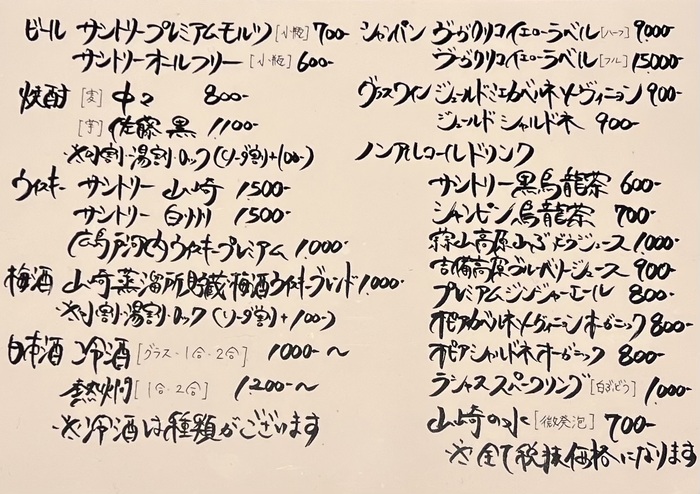 ビール サントリープレミアムモルツ [小瓶] 700-
サントリーオールフリー [小瓶] 600-
焼酎 [麦] 中々 800-
[芋] 佐藤 黒 1100-
※水割・湯割・ロック (ソーダ割+100-)
ウイスキー サントリー 山崎 1500-
サントリー 白州 1500-
広島戸河内ウイスキープレミアム 1000-
梅酒 山崎蒸溜所貯蔵梅酒ウイスキーブレンド 1000-
※水割・湯割・ロック (ソーダ割+100-)
日本酒 冷酒 [グラス・1合・2合] 1000-〜
熱燗 [1合・2合] 1200-〜
※冷酒は種類がございます
シャンパン ヴーヴクリコイエローラベル [ハーフ] 9000-
ヴーヴクリコイエローラベル [フル] 15000-
グラスワイン ジュールドミエカベルネソーヴィニヨン 900-
ジュールド シャルドネ 900-
ノンアルコールドリンク
サントリー黒烏龍茶 600-
シャンピン烏龍茶 700-
蒜山高原山ぶどうジュース 1000-
吉備高原ブルーベリージュース 900-
プレミアムジンジャーエール 800-
オピアカベルネソーヴィニヨンオーガニック 800-
オピアシャルドネオーガニック 800-
ラシャススパークリング [白ぶどう] 1000-
山崎の水 [微発泡] 700-
※全て税抜価格になります